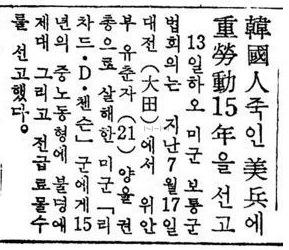 韓國人죽인 美兵에
重勞動15年을 선고
13일하오 미군 보통군
법회의는 지난7월17일
대전(大田)에서 위안
부 유춘자(21)양을 권
총으로 살해한미군「리
차드·D·첸슨」군에게15
년의 중노동형에 불명에
제대 그리고 전급료몰수
를 선고했다。